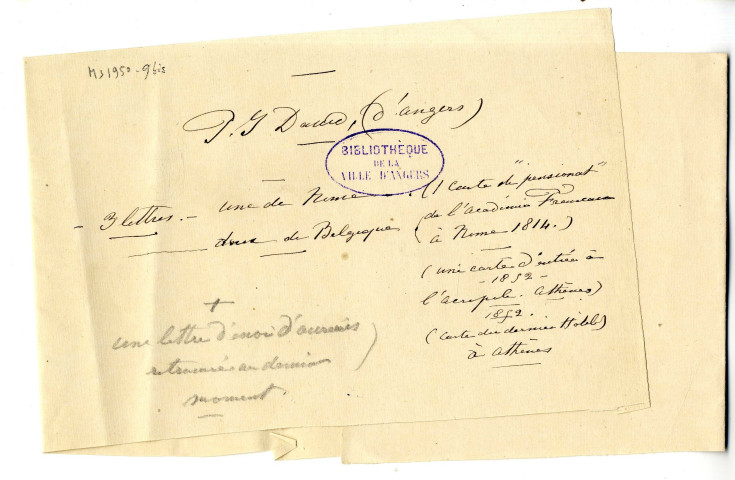 MS 1950 - 9 bis
P. J David, (d'angers)
BIBLIOTHÈQUE
DE LA
VILLE D'ANGERS
- 3 lettres. - une de Rome
deux de Belgique
(1 carte de "pensionat"
de l'académie Francaise
à Rome 1814.)
(une carte d'entrée à
- 1852 -
l'acropole. Athènes)
1852.
(carte du dernier Hotel)
à Athènes
+
une lettre d'envoi
retrouvée au dernier
moment.